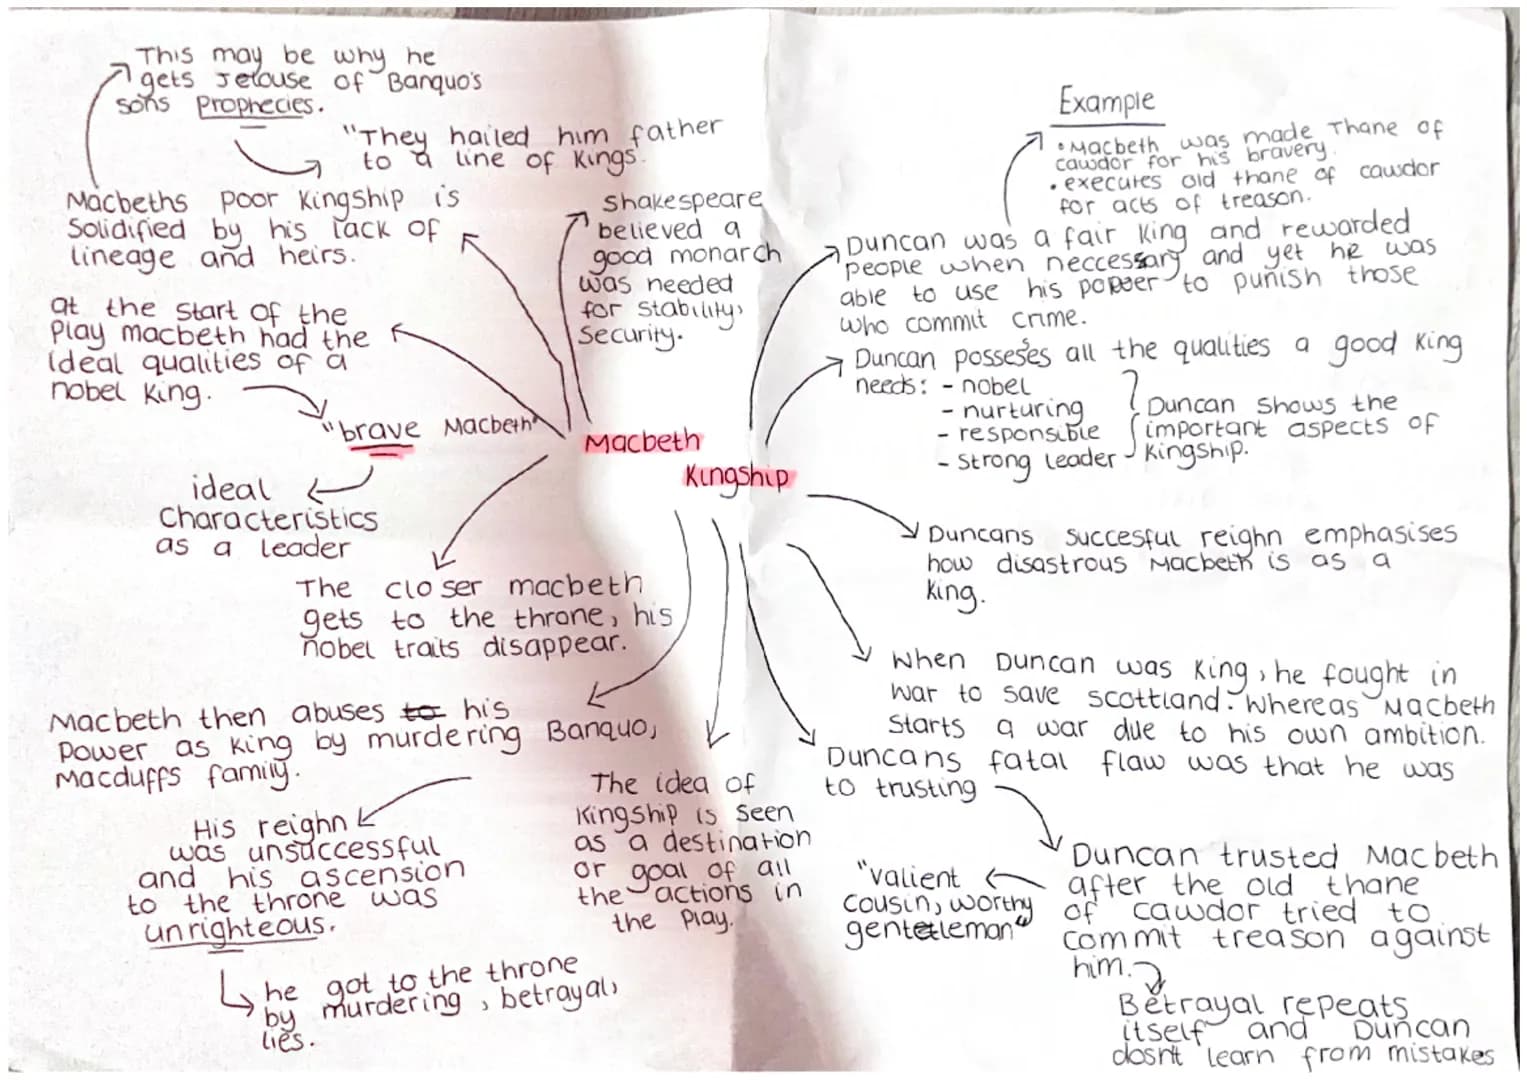 This may be why he
gets Jelouse of Banquo's
sons Prophecies.
"They hailed him father
to a line of Kings.
Macbeths poor Kingship is
Solidified by his lack of
lineage and heirs.
at the start of the
Play macbeth had the
ideal qualities of a
nobel King.
"brave Macbeth"
ideal
Characteristics
as a leader
Shakespeare
believed a
good monarch
was needed
for stability,
Security.
Macbeth
Kingship
The closer macbeth
gets to the throne, his
nobel traits disappear.
Macbeth then abuses to his
Power as King by murdering Banquo,
Macduffs family.
His reighn
was unsuccessful
and his ascension
to the throne was
unrighteous.
he got to the throne
by murdering, betrayal,
lies.
The idea of
Kingship is seen
as a destination
or goal of all
the actions in
the Play.
Example
• Macbeth was made Thane of
cawdor for his bravery.
• executes old thane of cawdor
for acts of treason.
Duncan was a fair King and rewarded
people when neccessary and yet he was
able to use his power to punish those
who commit crime.
Duncan posseses all the qualities a good King
needs: - nobel
- nurturing
- responsible
- Strong leader
Duncan Shows the
important aspects of
Kingship.
Duncans succesful reighn emphasises
how disastrous Macbeth is as a
King.
When Duncan was King, he fought in
war to save scottland. Whereas Macbeth
Starts a war due to his own ambition.
Duncans fatal flaw was that he was
to trusting
Duncan trusted Macbeth
after the old thane
of cawdor tried to
commit treason against
him.
"valient
cousin, worthy
gentleman"
Betrayal repeats
itself and Duncan
dosn't learn from mistakes